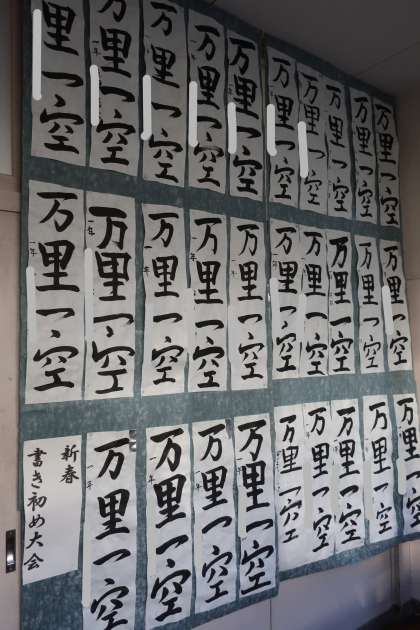 新春
書き初め大会
万里一空
万里一空
万里一空
万里一空
万里一空
万里一空
一年
万里一空
万里一空
万里一空
一年
万里一空
万里一空
万里一空
万里一空
万里一空
万里一空
万里一空
万里一空
万里一空
一年
万里一空
一年
万里一空
一年
万里一空
万里一空
万里一空
万里一空
万里一空
万里一空
万里一空
万里一空
一年
万里一空
一年